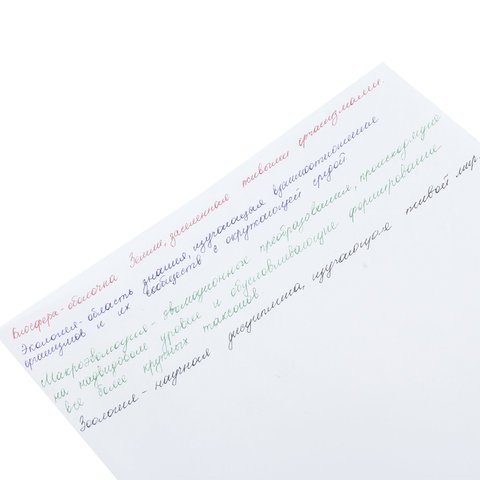 Биосфера - оболочка Земли, заселенная живыми организмами.
Экология - область знания, изучающая взаимоотношения
организмов и их сообществ с окружающей средой.
Макроэволюция - эволюционные преобразования, происходящие
на надвидовом уровне и обусловливающие формирование
все более крупных таксонов.
Зоология - научная дисциплина, изучающая живой мир.